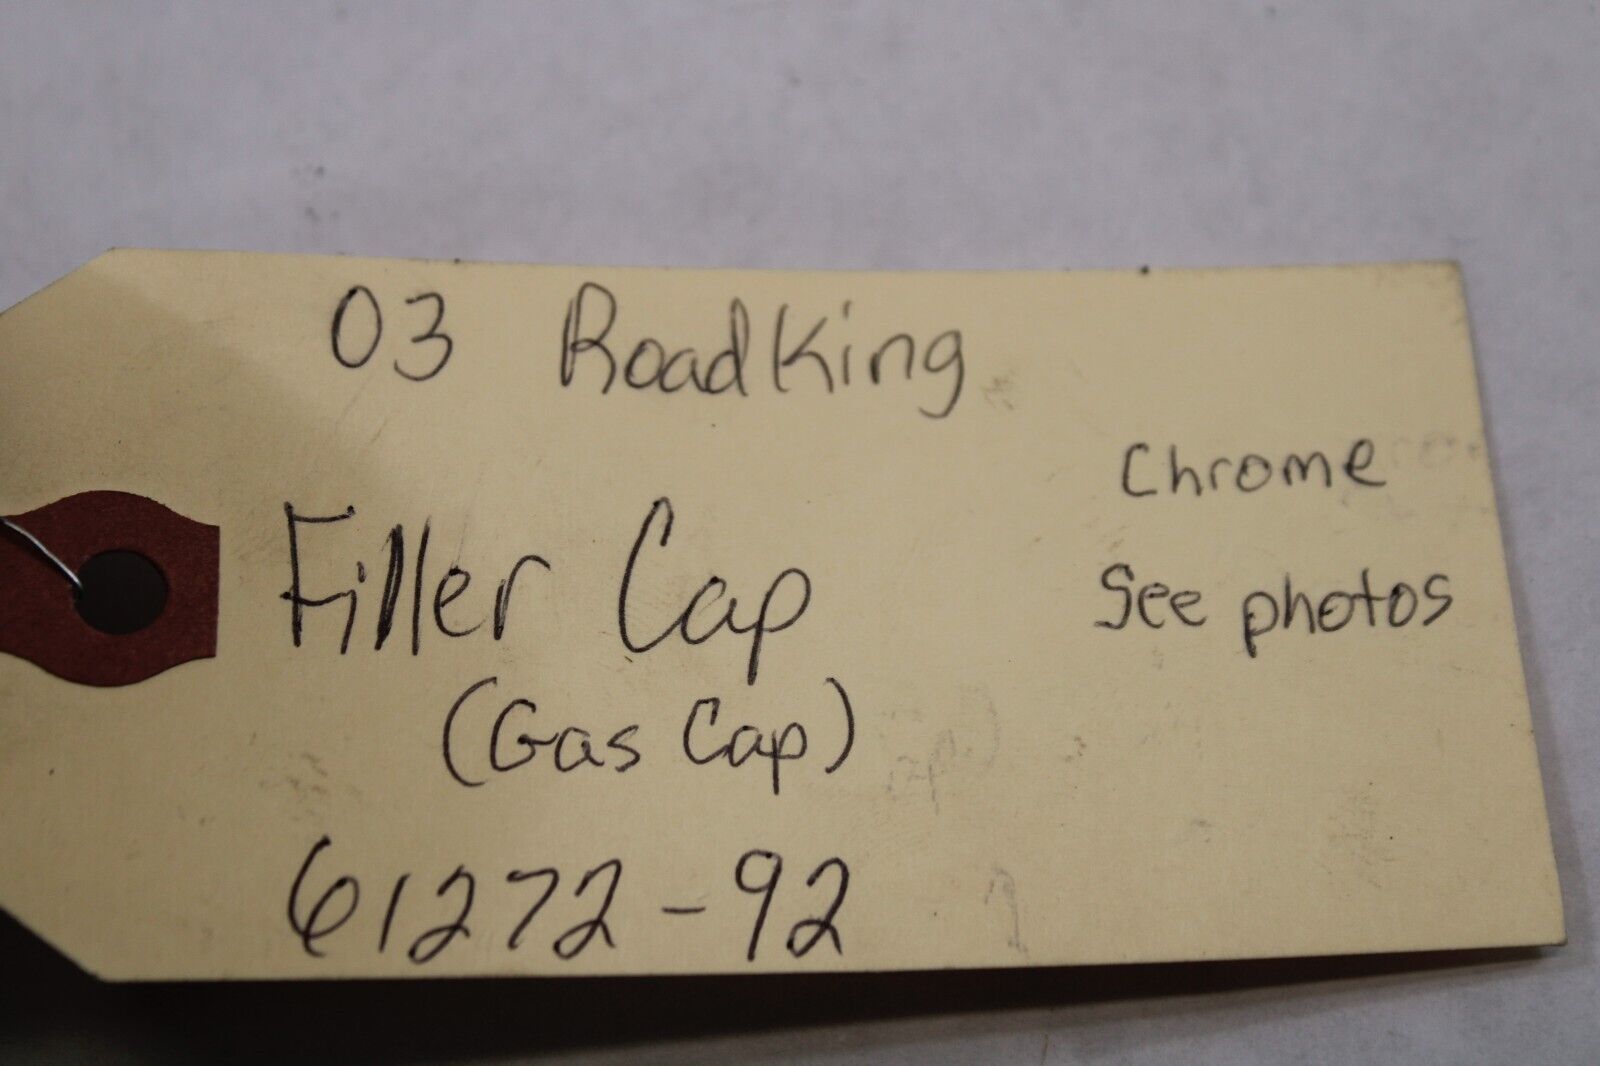 03 Road King
Chrome
Filler Cap
See photos
(Gas Cap)
61272-92